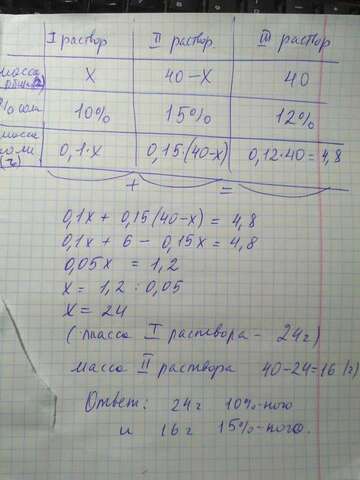 I раствор II раствор III раствор
масса общая(г) x 40-x 40
% сол 10% 15% 12%
масса соли (г) 0,1·x 0,15·(40-x) 0,12·40=4,8
+ =
0,1x + 0,15(40-x) = 4,8
0,1x + 6 - 0,15x = 4,8
0,05x = 1,2
x = 1,2 : 0,05
x = 24
(масса I раствора - 24г)
масса II раствора 40-24=16(г)
Ответ: 24г 10%-ного
и 16г 15%-ного.